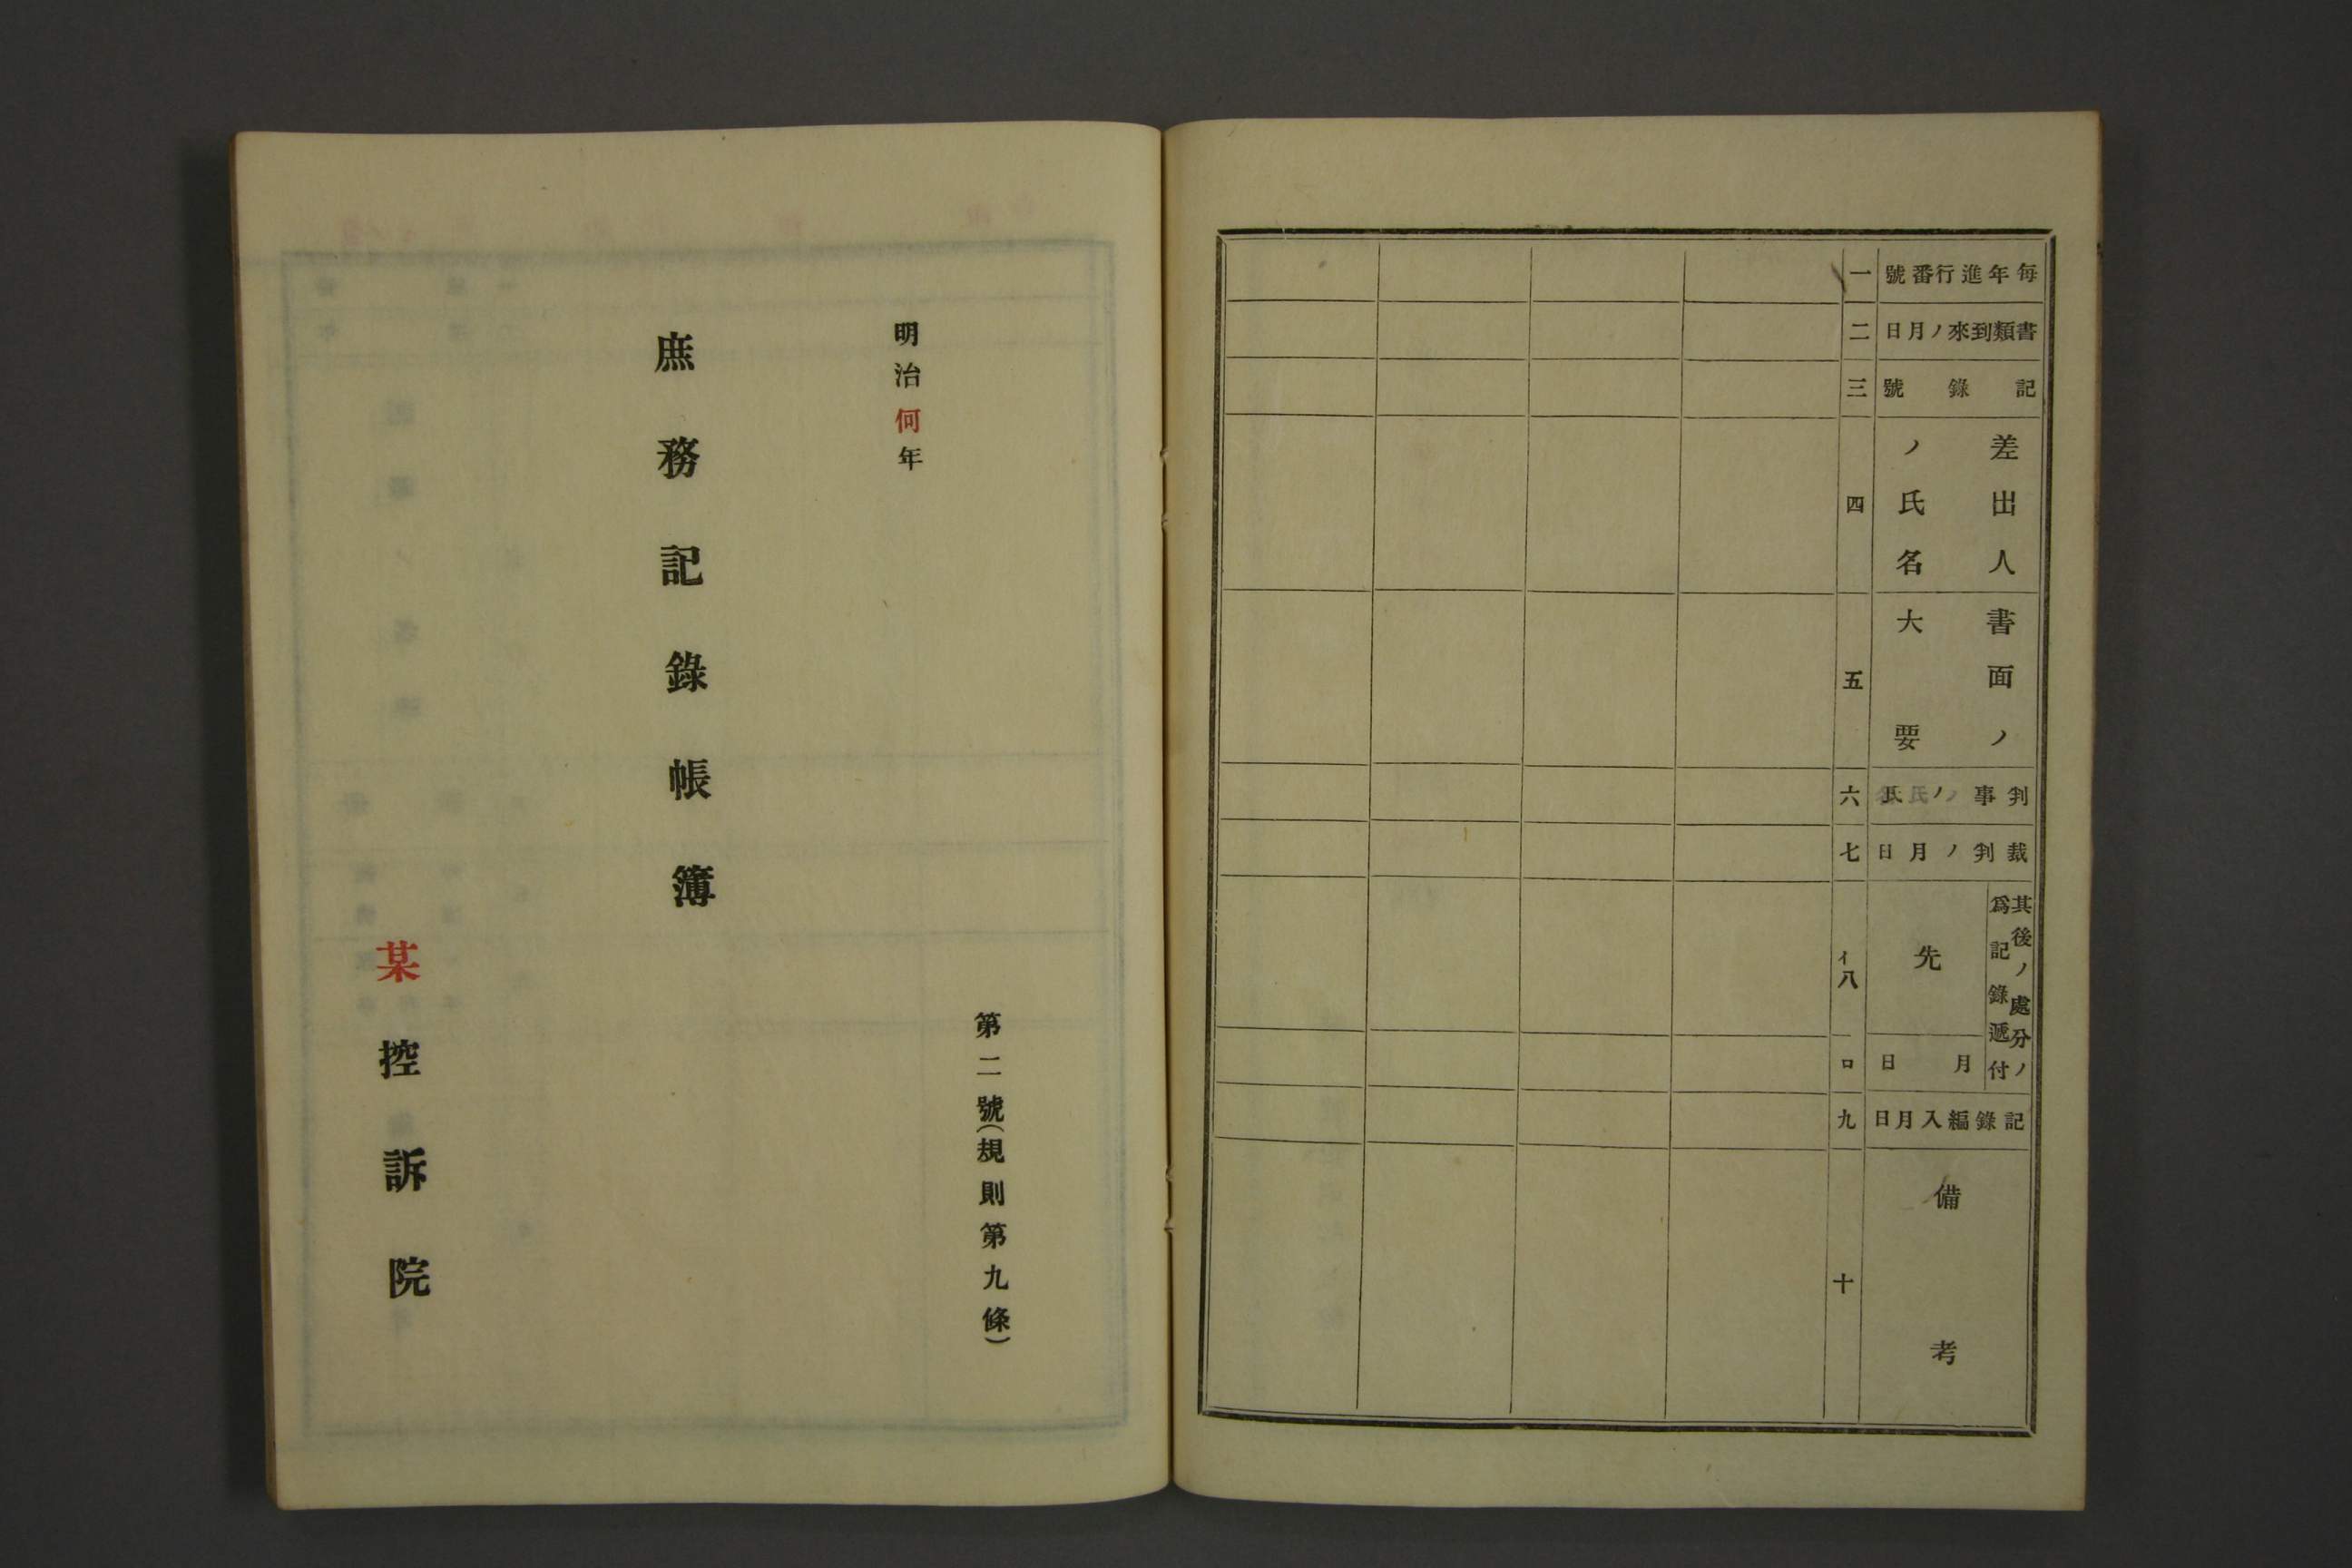 毎年進行番號
一
書類到來ノ月日
二
記錄號
三
差出人
ノ氏名
四
書面ノ
大要
五
判事ノ氏
六
裁判ノ月日
七
其後ノ處分ノ
爲記錄遞付
先
イ
八
月日
ロ
記錄編入月日
九
備考
十
第二號(規則第九條)
明治何年
庶務記錄帳簿
某控訴院